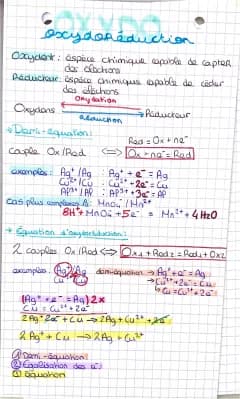 OXYDO
oxydoréduction
Oxydant : espèce chimique capable de capter
des électrons
Réducteur : espèce chimique capable de céder
des électrons
Oxydation
Oxydans Réducteur
Réduction
→ Demi-équation :
Red = Ox + ne⁻
couple Ox/Red ⟺ Ox + ne⁻ = Red
exemples : Ag⁺/Ag : Ag⁺ + e⁻ = Ag
Cu²⁺/Cu : Cu²⁺ + 2e⁻ = Cu
Al³⁺/Al : Al³⁺ + 3e⁻ = Al
Cas plus complexe : MnO₄⁻/Mn²⁺
8H⁺ + MnO₄⁻ + 5e⁻ = Mn²⁺ + 4H₂O
→ Équation d'oxydoréduction :
2 couples Ox/Red ⟺ Ox₁ + Red₂ = Red₁ + Ox₂
exemples : Ag⁺/Ag demi-équation → Ag⁺ + e⁻ = Ag
Cu²⁺/Cu → Cu²⁺ + 2e⁻ = Cu
↳ Cu = Cu²⁺ + 2e⁻
(Ag⁺ + e⁻ = Ag) 2x
Cu = Cu²⁺ + 2e⁻
2Ag⁺ + 2e⁻ + Cu → 2Ag + Cu²⁺ + 2e⁻
2Ag⁺ + Cu → 2Ag + Cu²⁺
① Demi-équation
② Égalisation des e⁻
③ équation